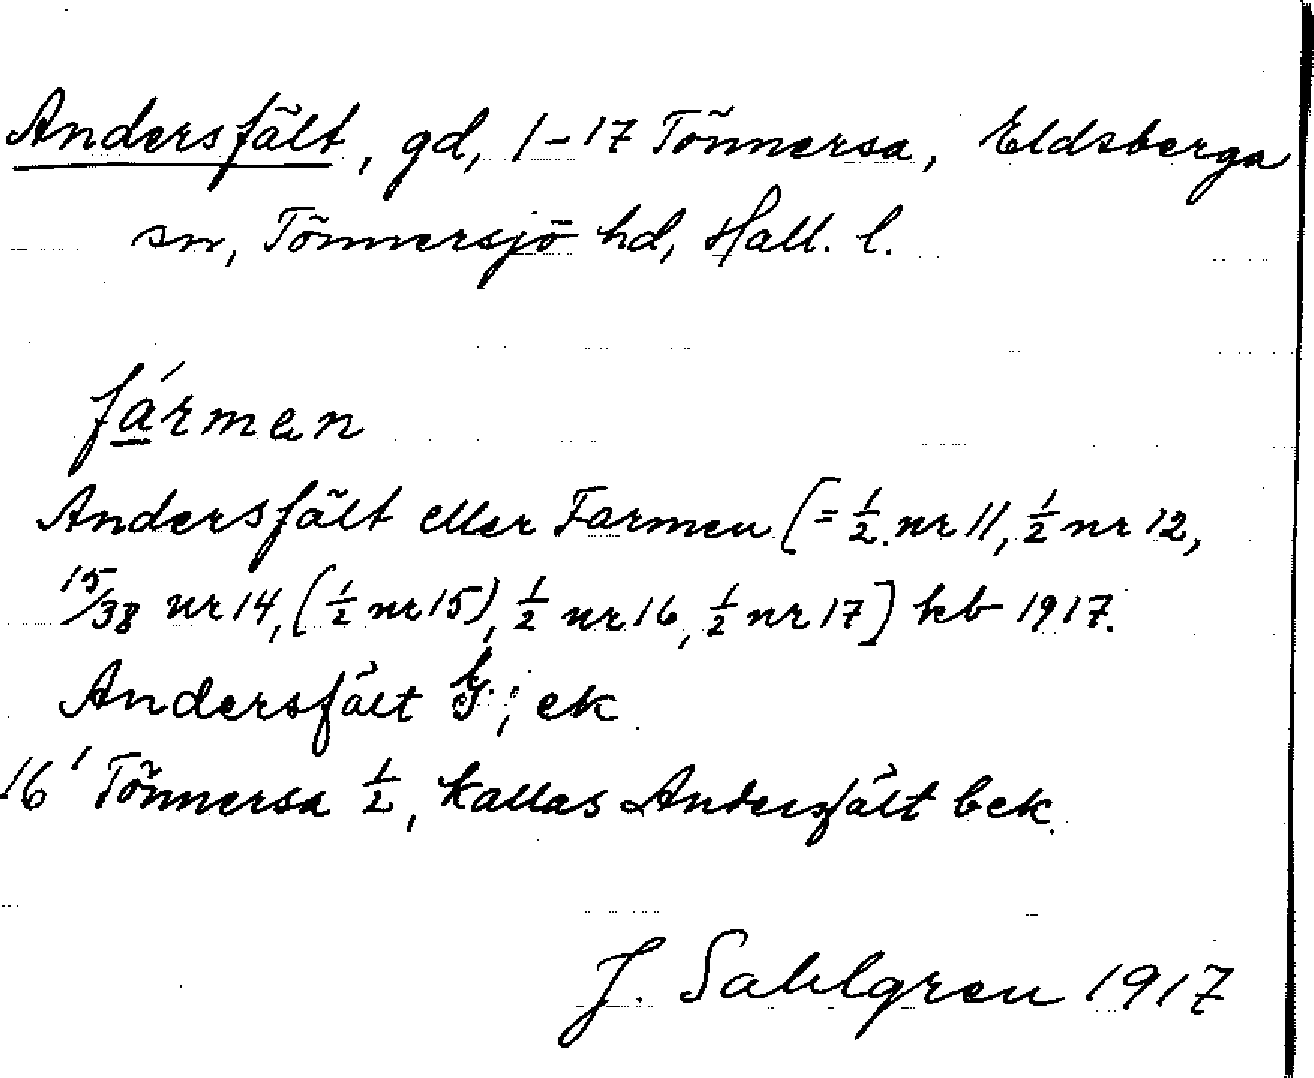 Andersfält, gd, 1-17 Tönnersa, Eldsberga
sn, Tönnersjö hd, Hall. l.
fármen
Andersfält eller Farmen [= 1/2 nr 11, 1/2 nr 12,
15/38 nr 14, (1/2 nr 15), 1/2 nr 16, 1/2 nr 17] kb 1917.
Andersfält G; ek
16¹ Tönnersa 1/2, kallas Andersfält bek.
J. Sahlgren 1917